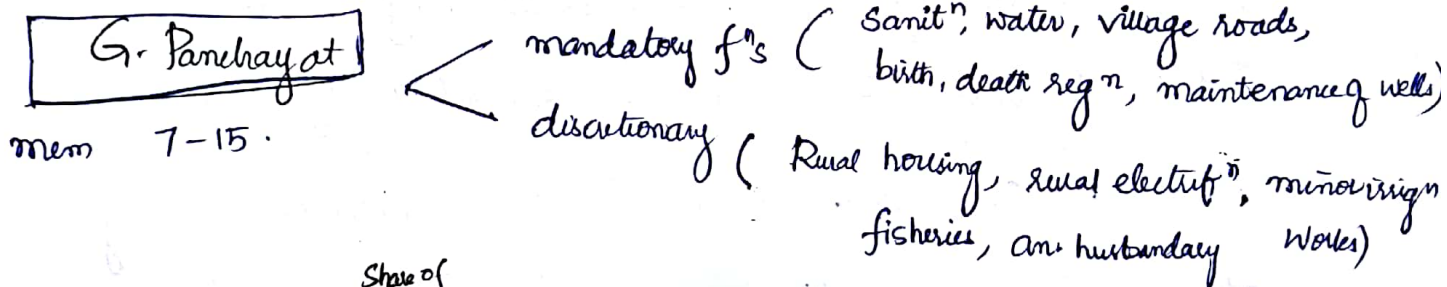 G. Panchayat
mem 7-15.
mandatory fⁿs ( Sanitⁿ, water, village roads,
birth, death regⁿ, maintenance of wells)
discretionary ( Rural housing, rural electrifⁿ, minor irrigⁿ
fisheries, an. husbandary works)
Share of